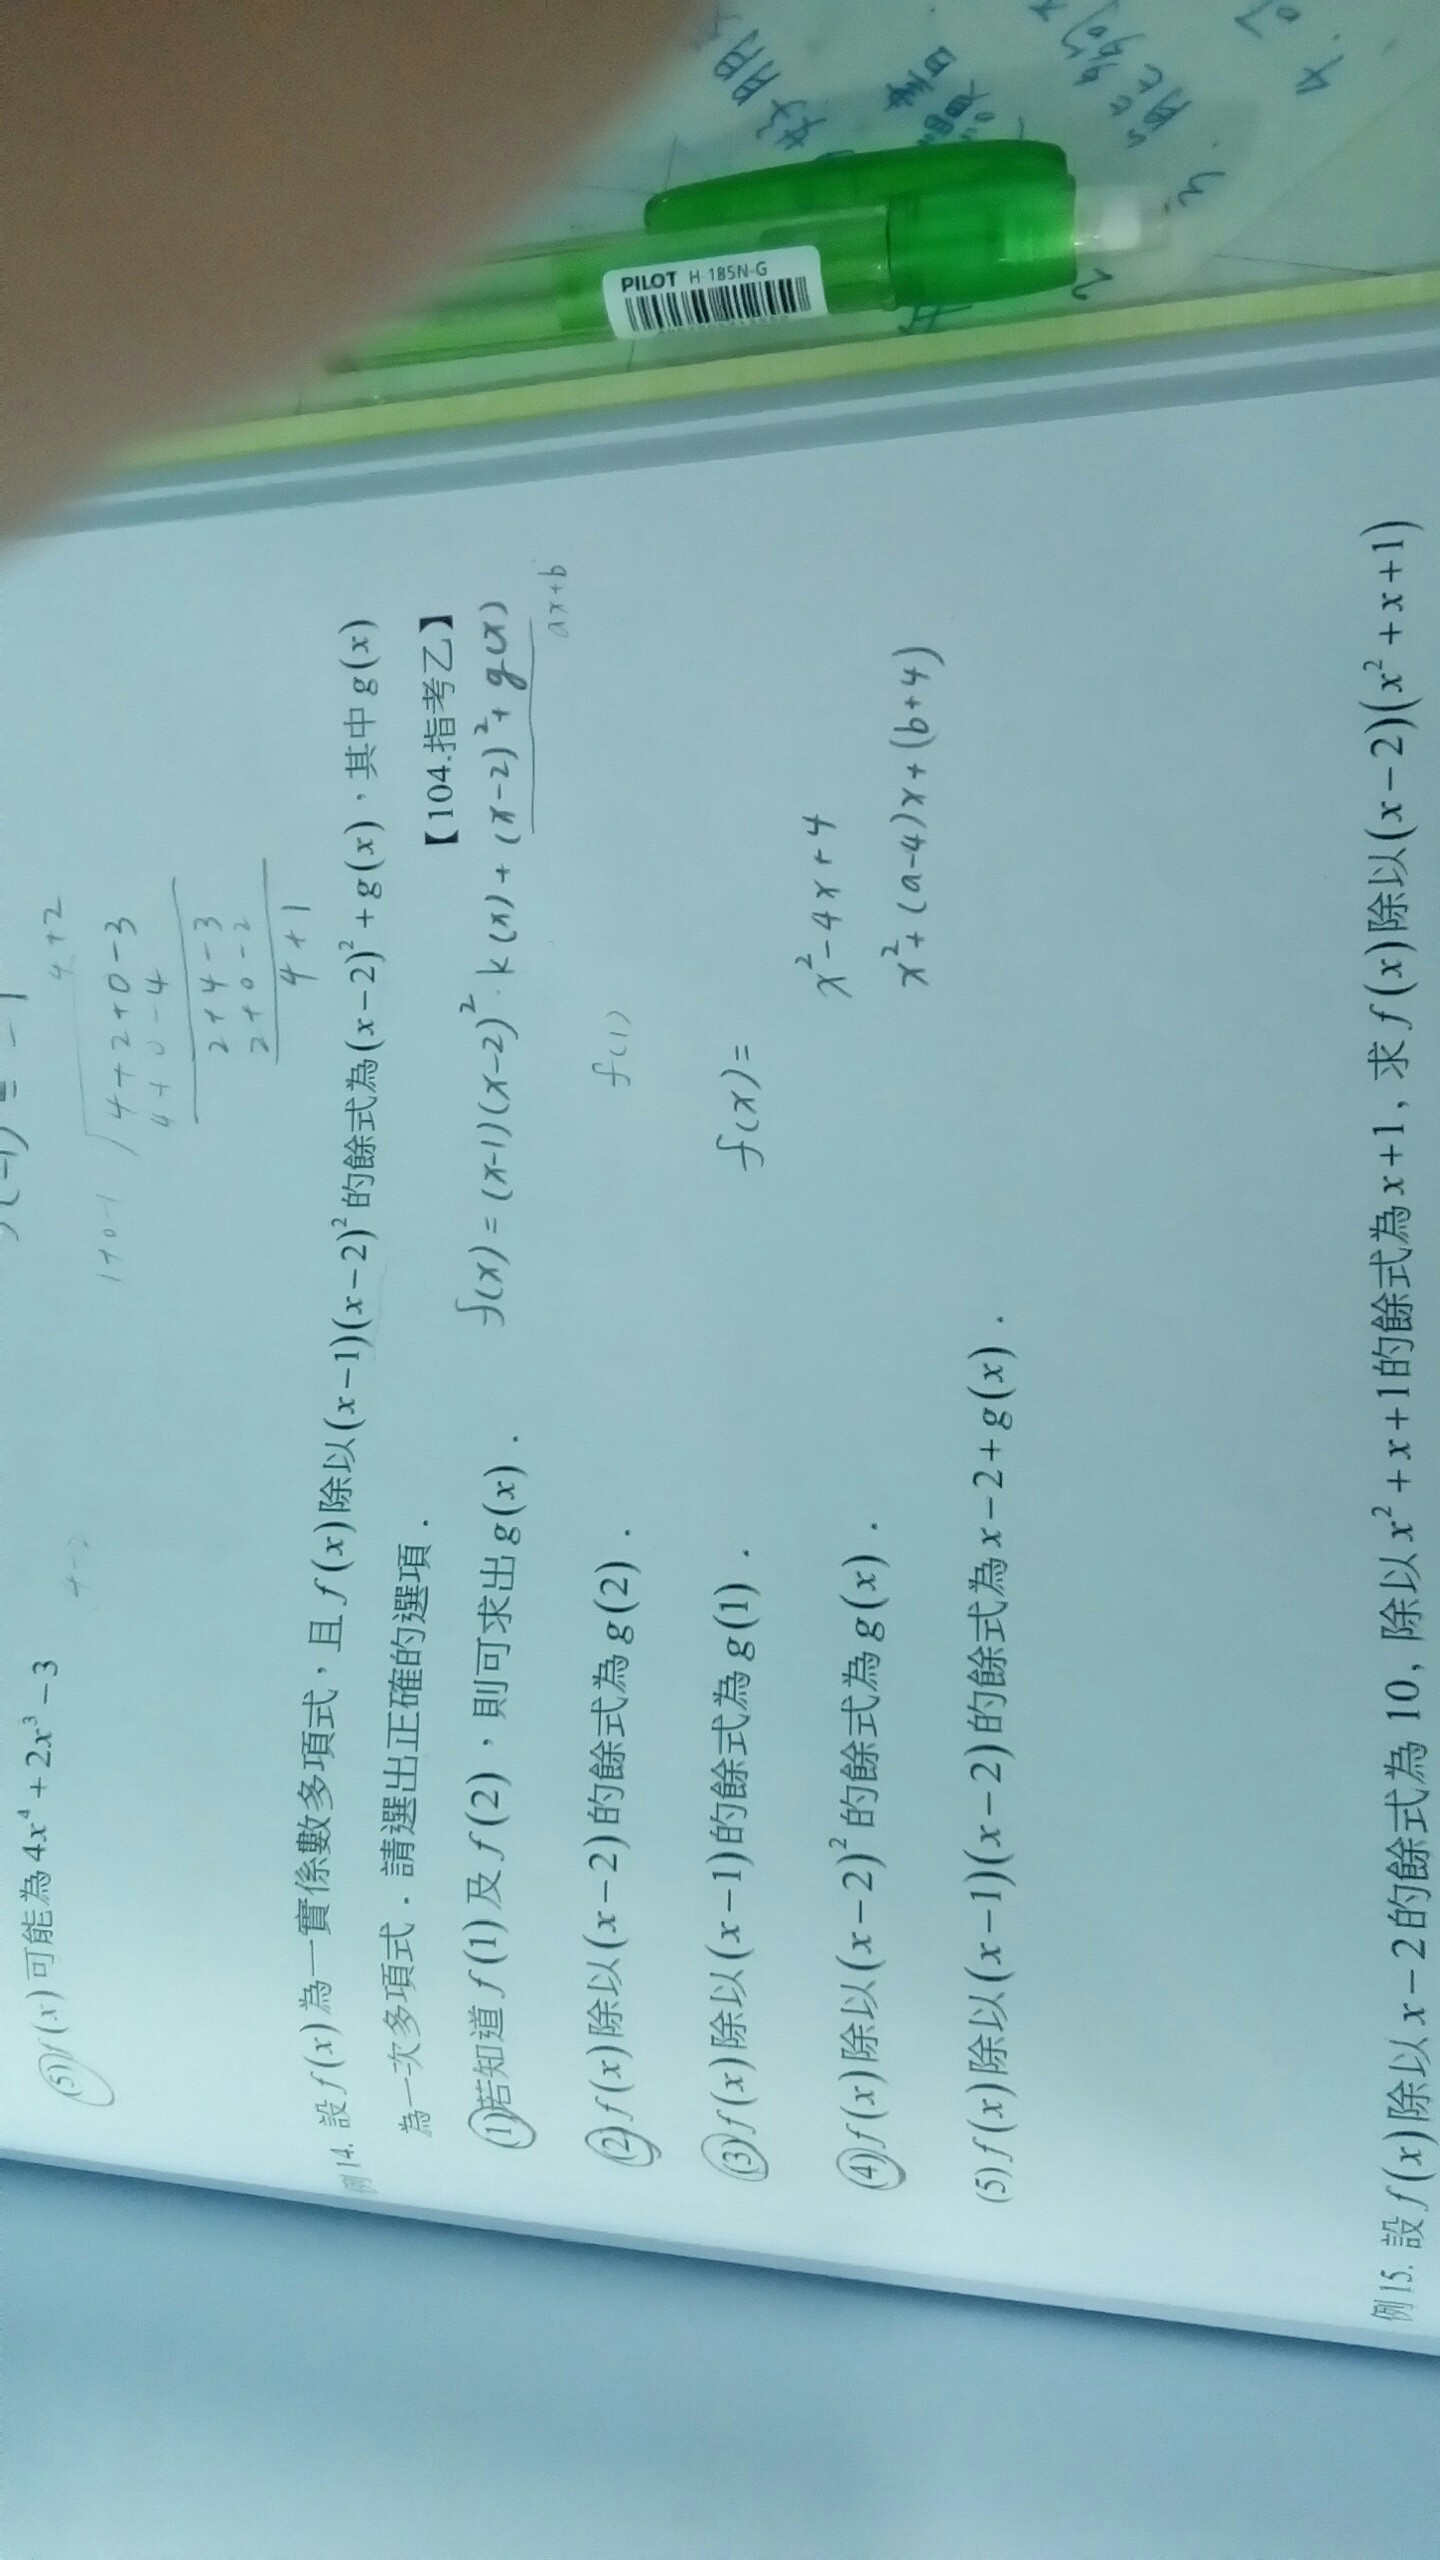 (5)f(x)可能為4x⁴+2x³-3
4+2
1+0-1
4+2+0-3
4+0-4
2+4-3
2+0-2
4+1
例14. 設f(x)為一實係數多項式,且f(x)除以(x-1)(x-2)²的餘式為(x-2)²+g(x),其中g(x)
為一次多項式.請選出正確的選項.
【104.指考乙】
(1)若知道f(1)及f(2),則可求出g(x).
f(x)=(x-1)(x-2)²·k(x)+(x-2)²+g(x)
ax+b
(2)f(x)除以(x-2)的餘式為g(2).
f(1)
(3)f(x)除以(x-1)的餘式為g(1).
f(x)=
x²-4x+4
(4)f(x)除以(x-2)²的餘式為g(x).
x²+(a-4)x+(b+4)
(5)f(x)除以(x-1)(x-2)的餘式為x-2+g(x).
例15. 設f(x)除以x-2的餘式為10,除以x²+x+1的餘式為x+1,求f(x)除以(x-2)(x²+x+1)
PILOT H-185N-G